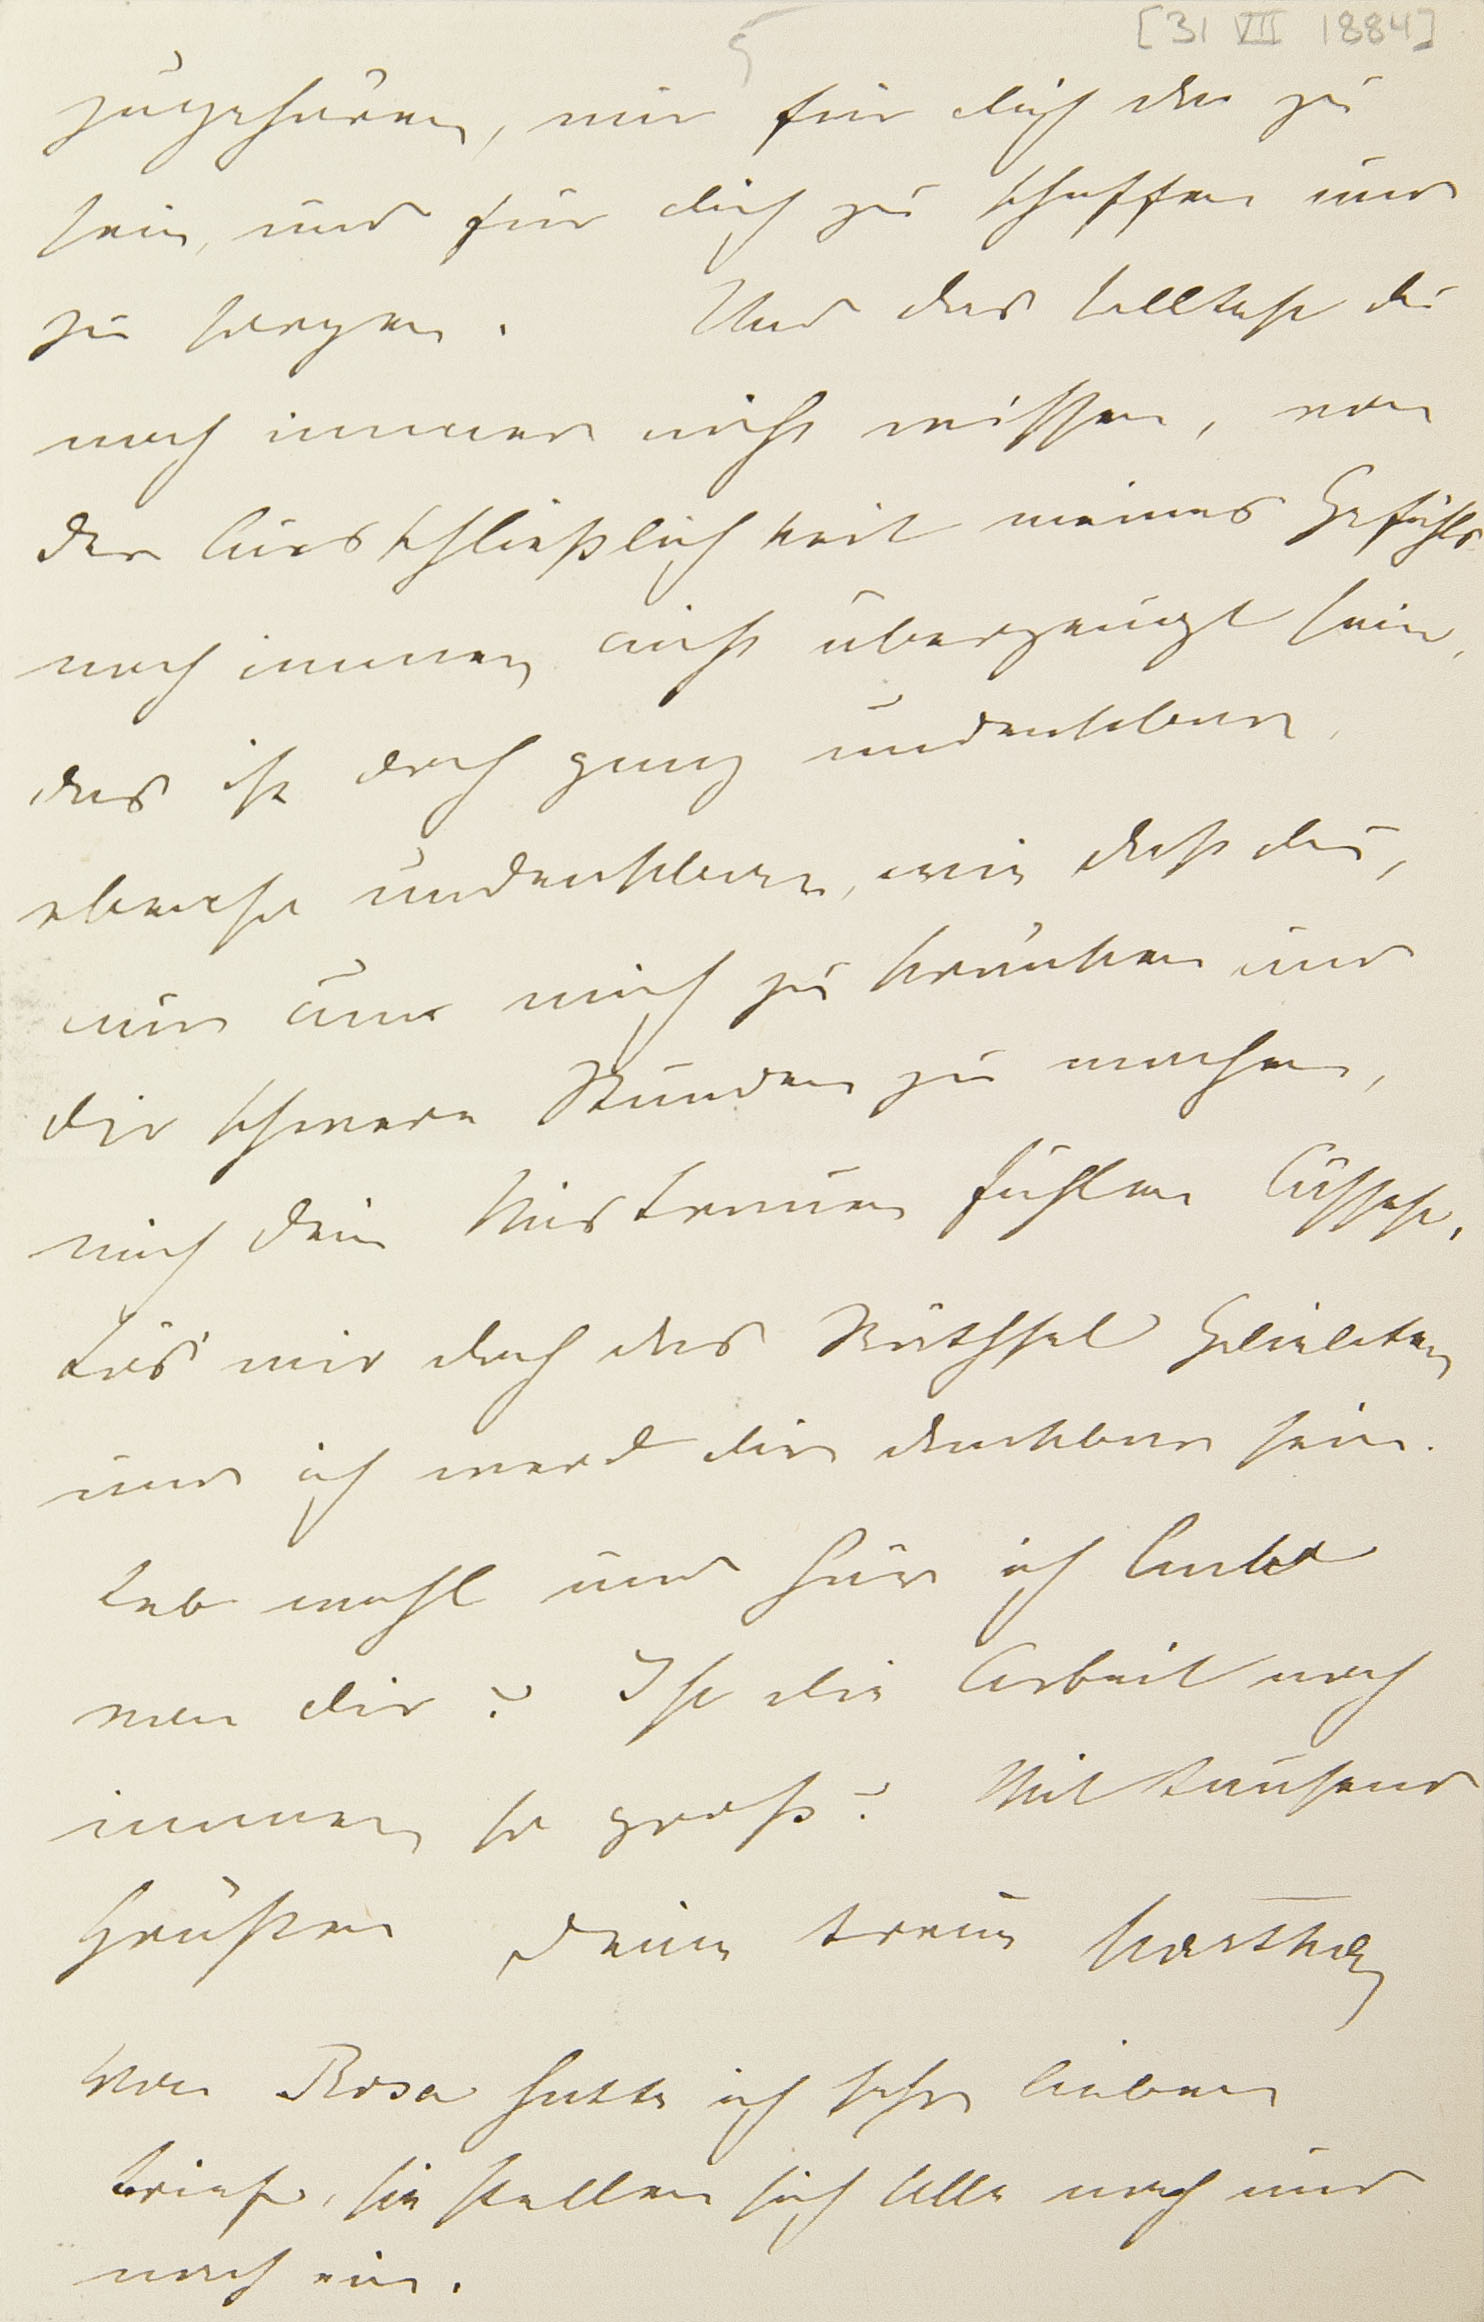 [31 VII 1884]
5
zugehören, nur für dich da zu
sein, und für dich zu schaffen und
zu sorgen. Und das solltest du
noch immer nicht wissen, von
der Ausschließlichkeit meines Gefühls
noch immer nicht überzeugt sein,
das ist doch ganz undenkbar,
ebenso undenkbar, wie daß du,
nur um mich zu kränken und
dir schwere Stunden zu machen,
mich dein Mistrauen fühlen ließest.
Lös' mir doch das Räthsel Geliebter
und ich werd dir dankbar sein.
Leb wohl und hör ich bald
von dir? Ist die Arbeit noch
immer so groß? Mit tausend
Grüßen deine treue Martha
Von Rosa hatte ich sehr lieben
Brief, sie stellen sich Alle nach und
nach ein.